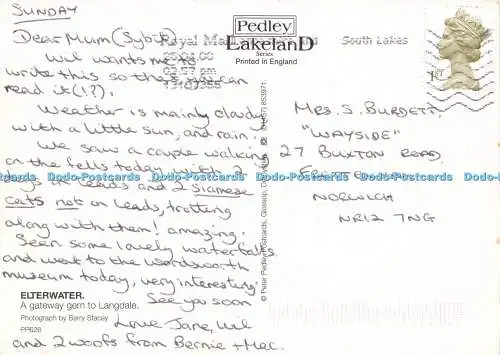 SUNDAY
Dear Mum (Sybil)
Wil wants me to
write this so that you can
read it (!?).
Weather is mainly cloudy
with a little sun, and rain!
We saw a couple walking
on the fells today with 2
dogs on leads and 2 siamese
cats not on leads, trotting
along with them! amazing.
Seen some lovely waterfalls
and went to the Wordsworth
museum today, very interesting.
See you soon
Love Jane, Wil
and 2 woofs from Bernie + Mac.
ELTERWATER.
A gateway gem to Langdale.
Photograph by Barry Stacey
PP626
Pedley
LakelanD
Series
Printed in England
© Peter Pedley Postcards, Glossop,
853971.
Royal Mail
South Lakes
1ST
MRS. S. BURDETT,
"WAYSIDE"
27 BUXTON ROAD
NORWICH
NR12 7NG
Dodo-Postcards Dodo-Postcards Dodo-Postcards Dodo-Postcards Dodo-Postcards